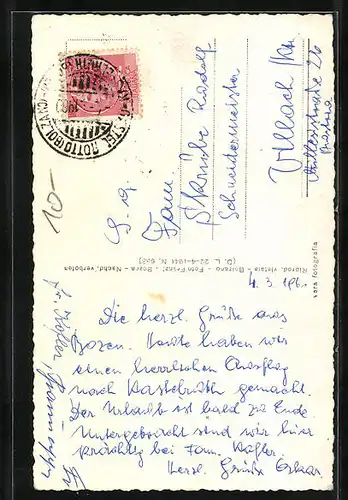 10-
S. g.
Fam.
Skrube Rudolf
Schneidermeister
Villach /Ktn
Austria
Riprod. vietata - Bolzano - Foto-Fränzl - Bozen - Nachd. verboten
(D. L. 22-4-1941 N. 633)
vera fotografia
4. 3. 196
Die herzl. Grüße aus
Bozen. Heute haben wir
einen herrlichen Ausflug
nach Kastelruth gemacht.
Der Urlaub ist bald zu Ende.
Untergebracht sind wir hier
prächtig bei Fam. Kofler.
Herzl. Grüße Oskar